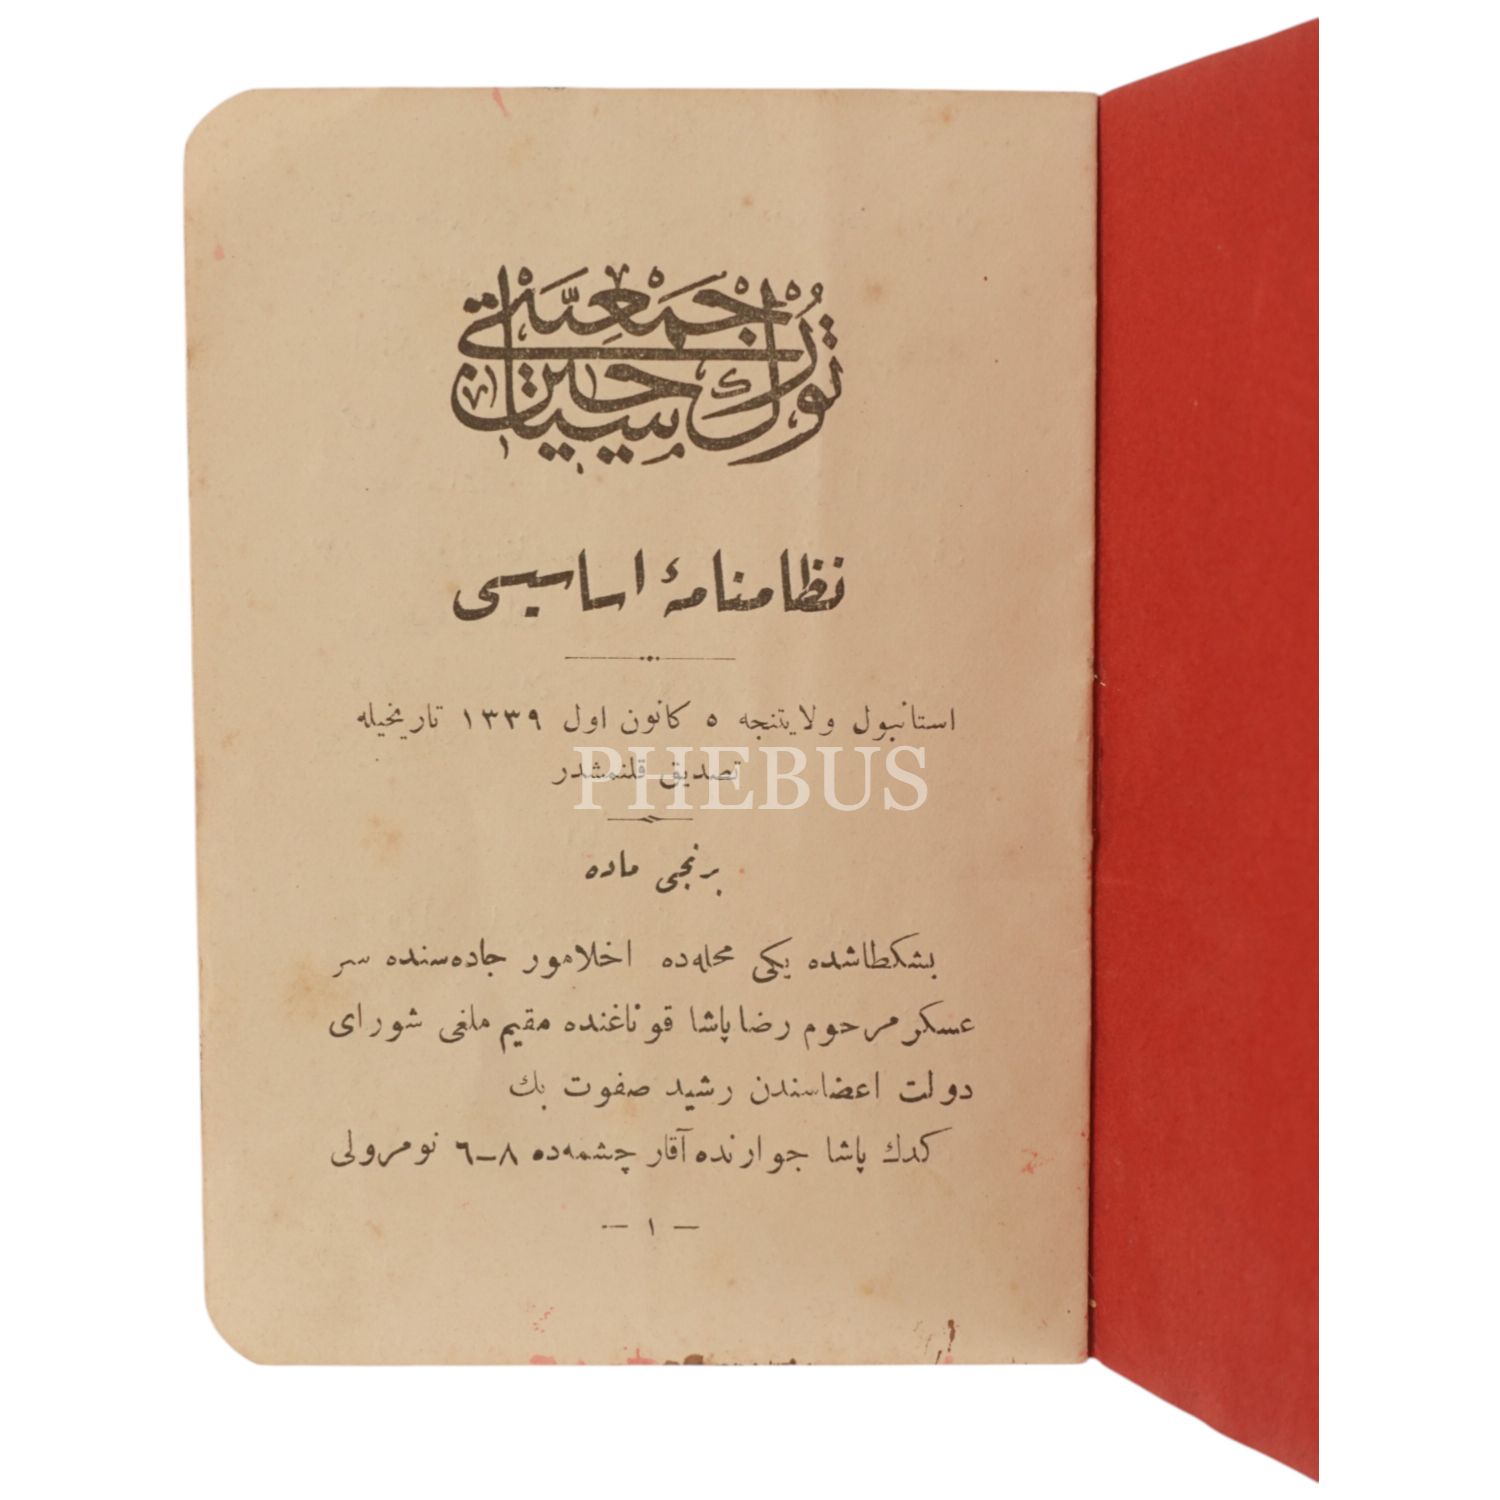 تورك سياحين جمعيتى
نظامنامهٔ اساسيسى
استانبول ولايتنجه ٥ كانون اول ١٣٣٩ تاريخيله
تصديق قلنمشدر
PHEBUS
برنجى ماده
بشكطاشده يكى محله‌ده اخلامور جاده‌سنده سر
عسكر مرحوم رضا پاشا قوناغنده مقيم ملغى شوراى
دولت اعضاسندن رشيد صفوت بك
كدك پاشا جوارنده آقار چشمه‌ده ٨-٦ نومرولى
— ١ —